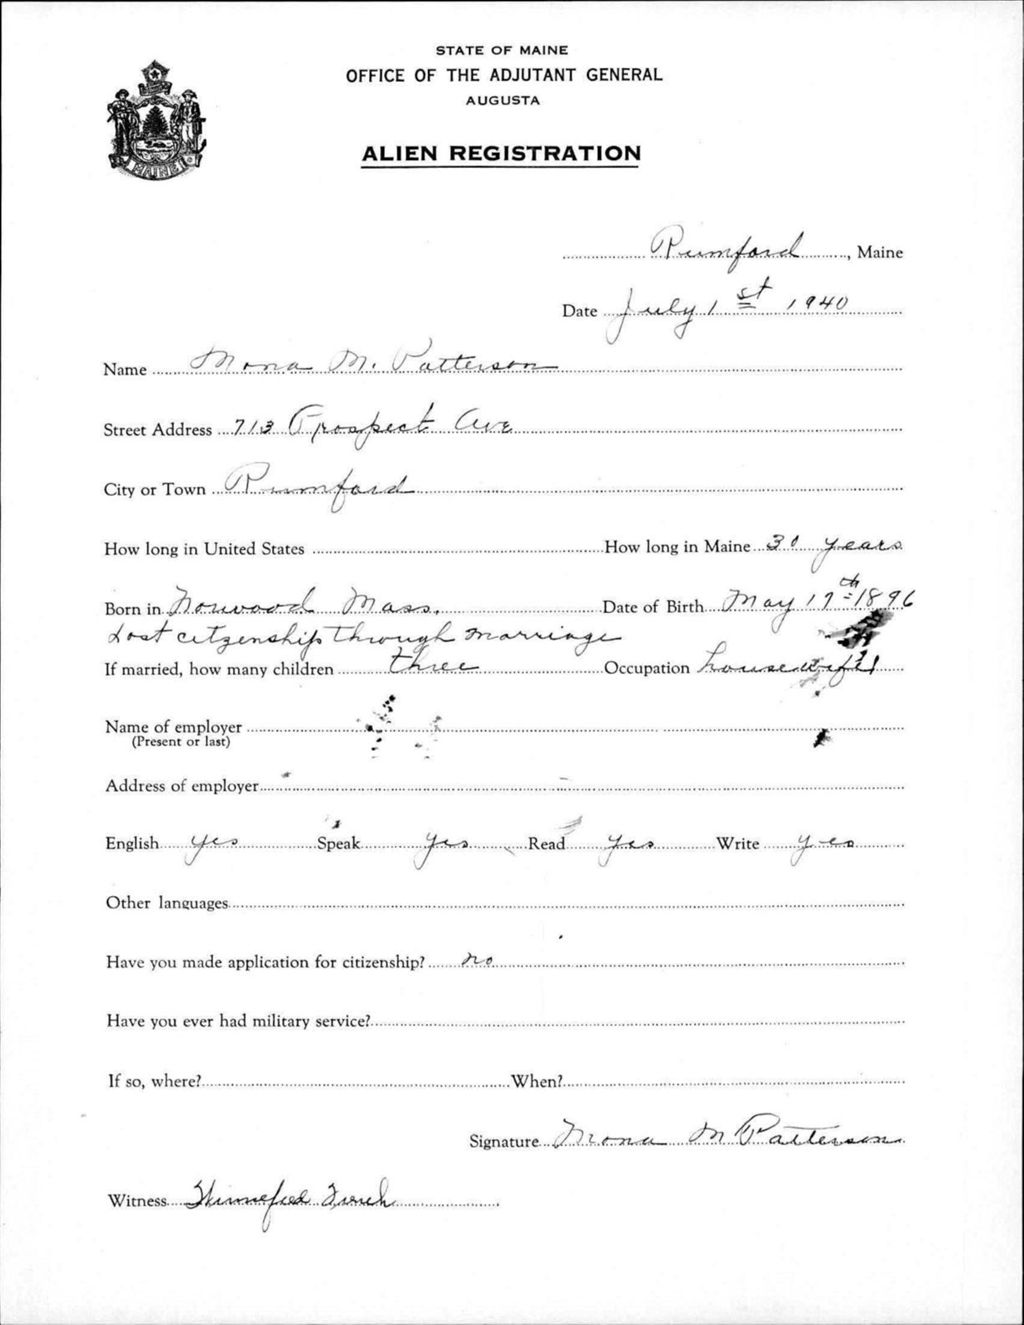 STATE OF MAINE
OFFICE OF THE ADJUTANT GENERAL
AUGUSTA
ALIEN REGISTRATION
MAINE
Rumford, Maine
Date July 1st 1940
Name Mona M. Patterson
Street Address 713 Prospect Ave
City or Town Rumford
How long in United States How long in Maine 30 years
Born in Norwood Mass. Date of Birth May 17th 1896
Lost citzenship through marriage
If married, how many children three Occupation housewife
Name of employer
(Present or last)
Address of employer
English yes Speak yes Read yes Write yes
Other languages
Have you made application for citizenship? no
Have you ever had military service?
If so, where? When?
Signature Mona M Patterson
Witness Winnefred